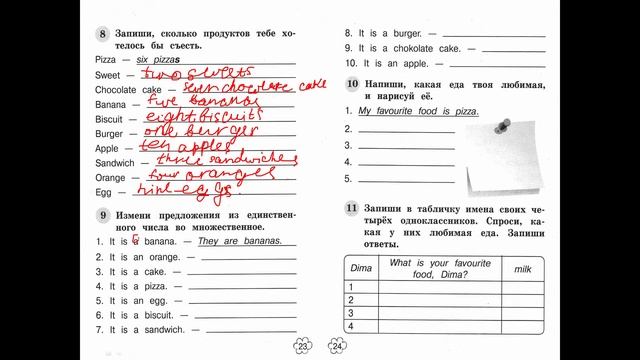 8 Запиши, сколько продуктов тебе хо-
телось бы съесть.
Pizza — six pizzas
Sweet — two sweets
Chocolate cake — seven chocolate cake
Banana — five bananas
Biscuit — eight biscuits
Burger — one burger
Apple — ten apples
Sandwich — three sandwiches
Orange — four oranges
Egg — nine eggs.
9 Измени предложения из единствен-
ного числа во множественное.
1. It is a banana. — They are bananas.
2. It is an orange. —
3. It is a cake. —
4. It is a pizza. —
5. It is an egg. —
6. It is a biscuit. —
7. It is a sandwich. —
23
8. It is a burger. —
9. It is a chokolate cake. —
10. It is an apple. —
10 Напиши, какая еда твоя любимая,
и нарисуй её.
1. My favourite food is pizza.
2.
3.
4.
5.
11 Запиши в табличку имена своих че-
тырёх одноклассников. Спроси, ка-
кая у них любимая еда. Запиши
ответы.
Dima What is your favourite food, Dima? milk
1
2
3
4
24